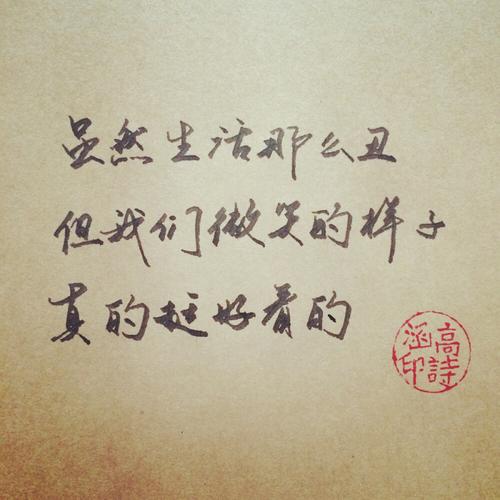 虽然生活那么丑
但我们微笑的样子
真的挺好看的
高詩
涵印